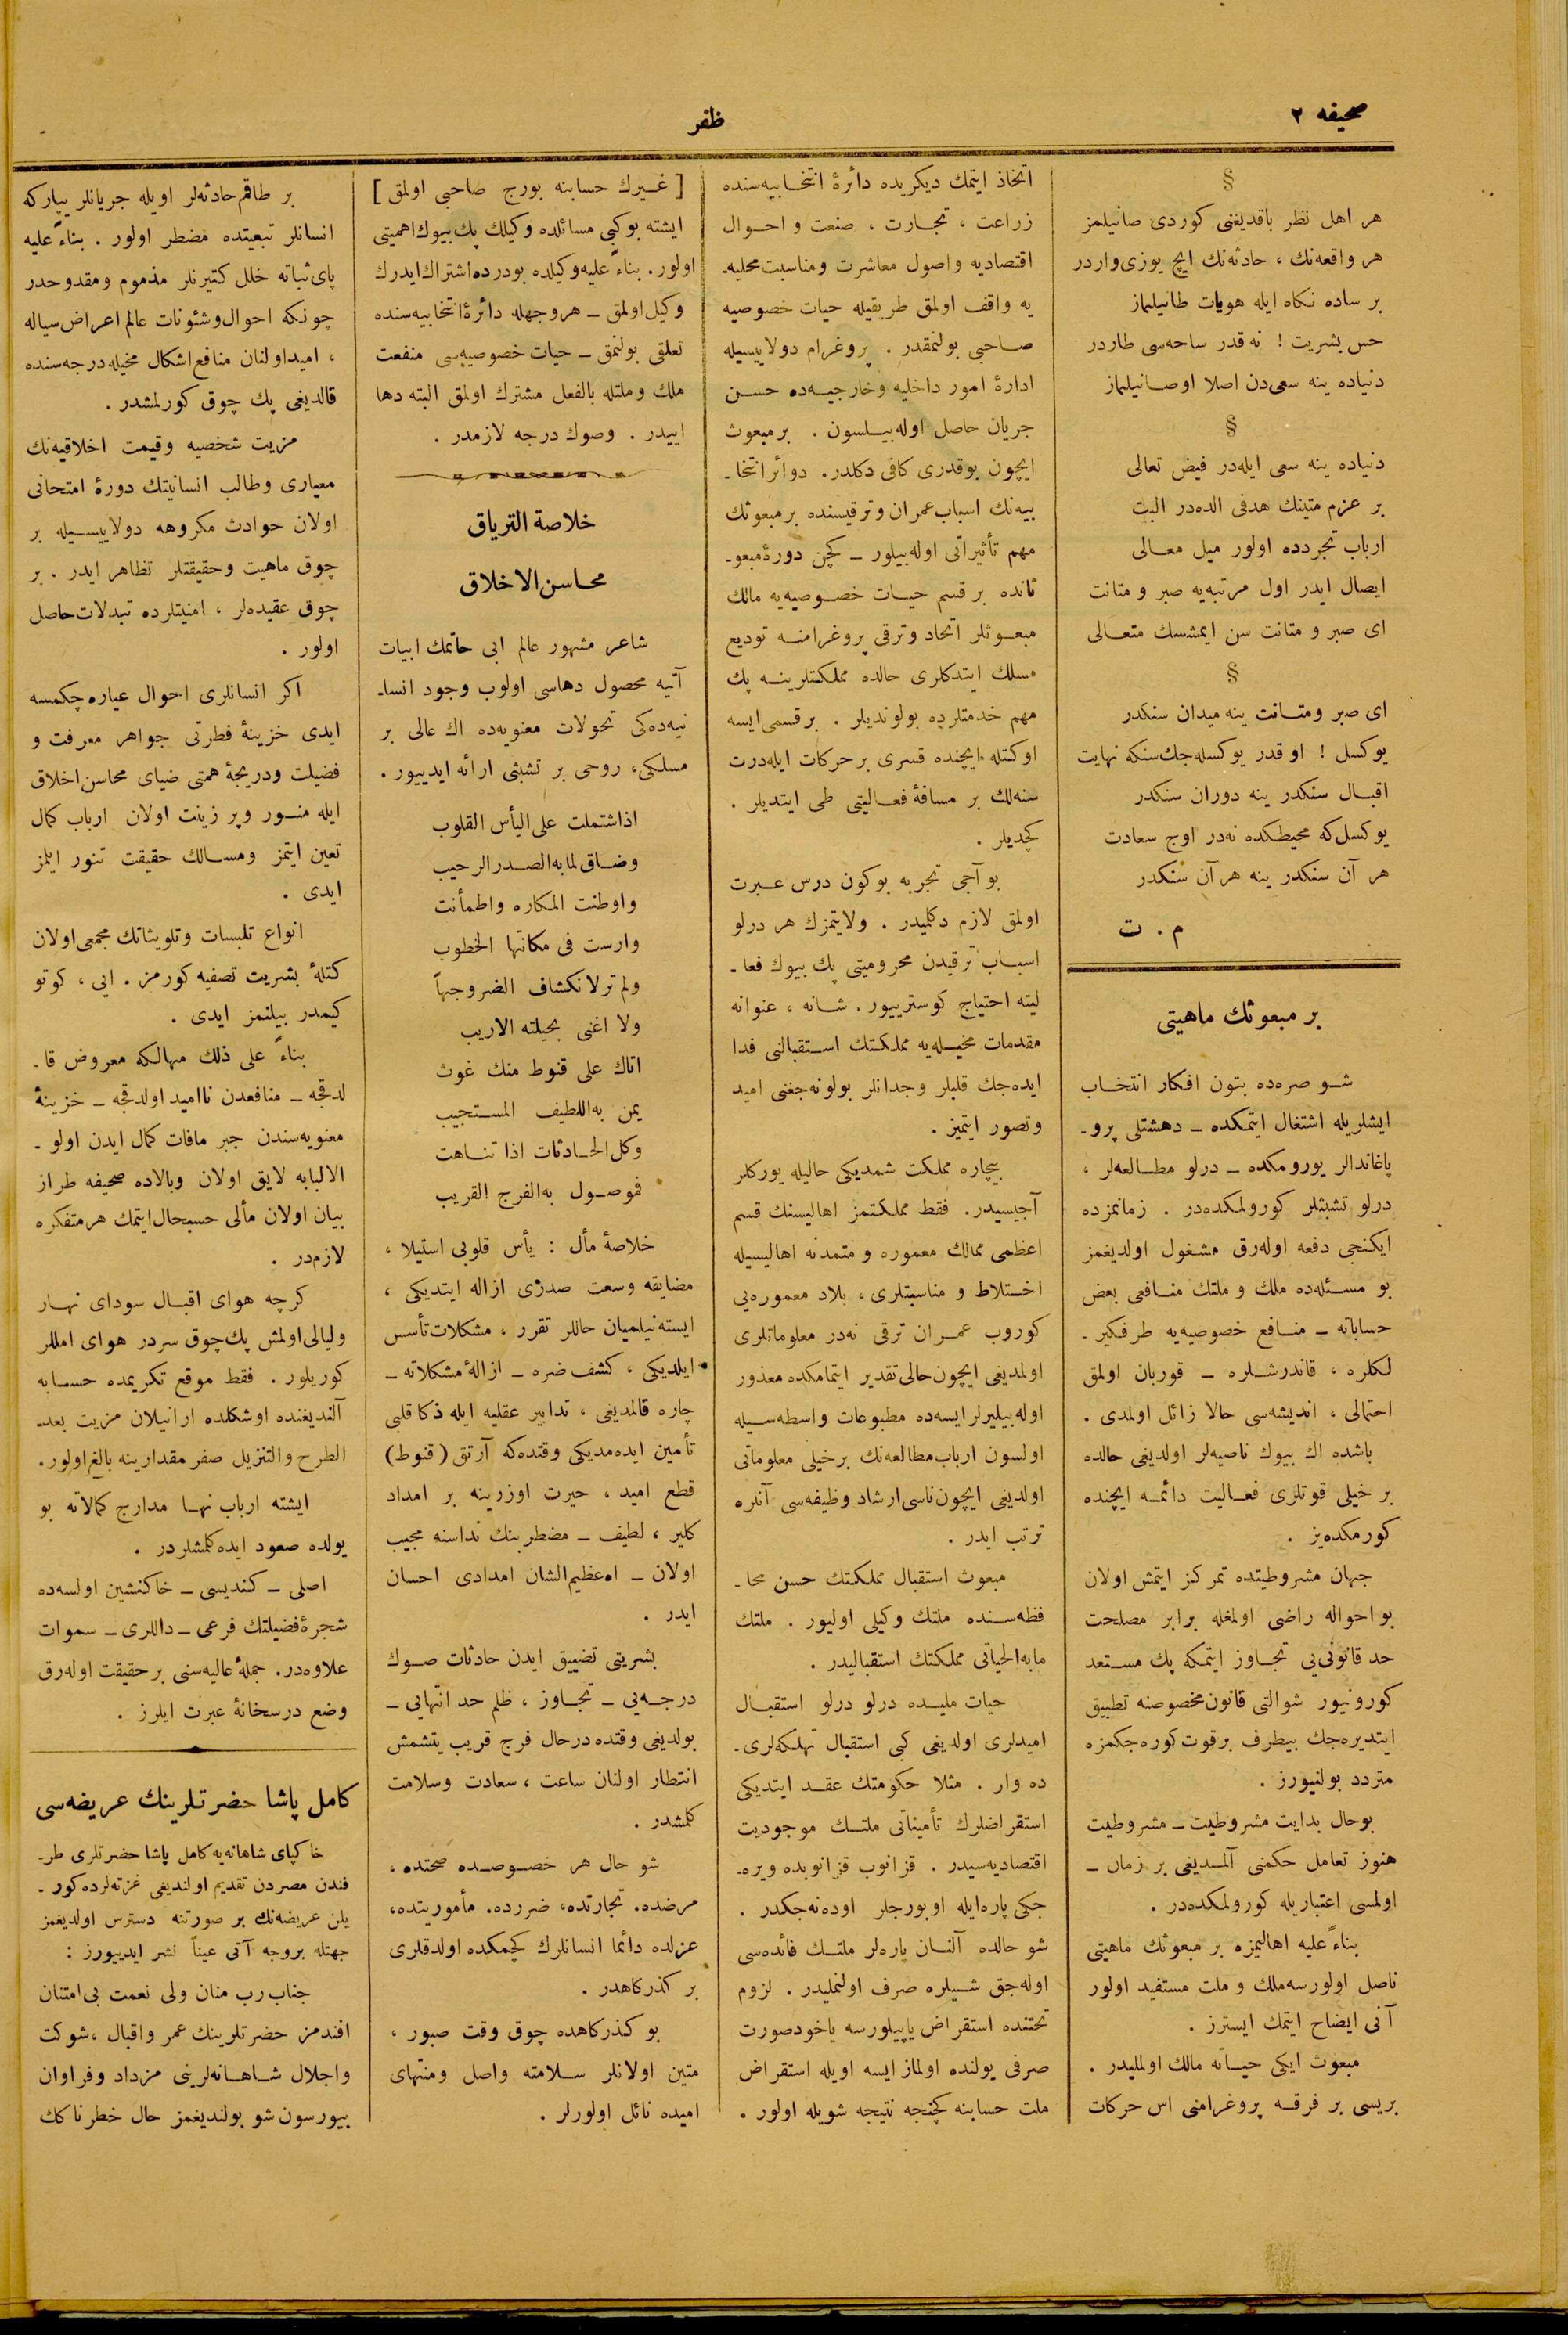 صحیفه ۲
ظفر
§
هر اهل نظر باقدیغنی کوردی صانیلمز
هر واقعه‌نك ، حادثه‌نك ایچ یوزی واردر
بر ساده نکاه ایله هویات طانیلماز
حس بشریت ! نه قدر ساحه‌سی طاردر
دنیاده ینه سعی‌دن اصلا اوصانیلماز
§
دنیاده ینه سعی ایله‌در فیض تعالی
بر عزم متینك هدفی الده‌در البت
ارباب تجردده اولور میل معالی
ایصال ایدر اول مرتبه‌یه صبر و متانت
ای صبر و متانت سن ایمشسك متعالی
§
ای صبر ومتانت ینه میدان سنکدر
یوکسل ! او قدر یوکسله‌جك‌سنکه نهایت
اقبال سنکدر ینه دوران سنکدر
یوکسل‌که محیطکده نه‌در اوج سعادت
هر آن سنکدر ینه هر آن سنکدر
م . ت
بر مبعوثك ماهیتی
شو صره‌ده بتون افکار انتخاب
ایشلریله اشتغال ایتمکده ــ دهشتلی پرو-
پاغاندالر یورومکده ــ درلو مطالعه‌لر ،
درلو تشبثلر کورولمکده‌در . زمانمزده
ایکنجی دفعه اوله‌رق مشغول اولدیغمز
بو مسئله‌ده ملك و ملتك منافعی بعض
حساباته ــ منافع خصوصیه‌یه طرفکیر-
لکلره ، قاندرشلره ــ قوربان اولمق
احتمالی ، اندیشه‌سی حالا زائل اولمدی .
باشده اك بیوك ناصیه‌لر اولدیغی حالده
بر خیلی قوتلری فعالیت دائمه ایچنده
کورمکده‌یز .
جهان مشروطیتده تمرکز ایتمش اولان
بو احواله راضی اولمغله برابر مصلحت
حد قانونی‌یی تجاوز ایتمکه پك مستعد
کورونیور شو التی قانون مخصوصنه تطبیق
ایتدیره‌جك بیطرف برقوت کوره‌جکمزه
متردد بولنیورز .
بوحال بدایت مشروطیت ــ مشروطیت
هنوز تعامل حکمنی آلمدیغی بر زمان ــ
اولمسی اعتباریله کورولمکده‌در .
بناءً علیه اهالیمزه بر مبعوثك ماهیتی
ناصل اولورسه ملك و ملت مستفید اولور
آنی ایضاح ایتمك ایسترز .
مبعوث ایکی حیاته مالك اولملیدر .
بریسی بر فرقه پروغرامنی اس حرکات
اتخاذ ایتمك دیکریده دائرۀ انتخابیه‌سنده
زراعت ، تجارت ، صنعت و احوال
اقتصادیه و اصول معاشرت ومناسبت محلیه-
یه واقف اولمق طریقیله حیات خصوصیه
صاحبی بولنمقدر . پروغرام دولاییسیله
ادارۀ امور داخلیه و خارجیه‌ده حسن
جریان حاصل اوله‌بیلسون . برمبعوث
ایچون بوقدری کافی دکلدر. دوائر انتخا-
بیه‌نك اسباب عمران وترقیسنده برمبعوثك
مهم تأثیراتی اوله‌بیلور ــ کچن دورۀ مبعو-
ثانده بر قسم حیات خصوصیه‌یه مالك
مبعوثلر اتحاد وترقی پروغرامنه تودیع
مسلك ایتدکلری حالده مملکتلرینه پك
مهم خدمتلرده بولوندیلر . برقسمی ایسه
اوکتله ایچنده قسری برحرکات ایله درت
سنه‌لك بر مسافۀ فعالیتی طی ایتدیلر .
کچدیلر .
بو آجی تجربه بوکون درس عبرت
اولمق لازم دکلمیدر . ولایتمزك هر درلو
اسباب ترقیدن محرومیتی پك بیوك فعا-
لیته احتیاج کوستریيور . شانه ، عنوانه
مقدمات مخیله‌یه مملکتك استقبالنی فدا
ایده‌جك قلبلر وجدانلر بولونه‌جغنی امید
وتصور ایتمیز .
بیچاره مملکت شمدیکی حالیله یورکلر
آجیسیدر. فقط مملکتمز اهالیسنك قسم
اعظمی ممالك معموره و متمدنه اهالیسیله
اختلاط و مناسبتلری ، بلاد معموره‌یی
کوروب عمران ترقی نه‌در معلوماتلری
اولمدیغی ایچون حالی تقدیر ایتمامکده معذور
اوله‌بیلیرلر ایسه‌ده مطبوعات واسطه‌سیله
اولسون ارباب مطالعه‌نك برخیلی معلوماتی
اولدیغی ایچون ناسی ارشاد وظیفه‌سی آنلره
ترتب ایدر .
مبعوث استقبال مملکتك حسن محا-
فظه‌سنده ملتك وکیلی اولیور . ملتك
مابه‌الحیاتی مملکتك استقبالیدر .
حیات ملیه‌ده درلو درلو استقبال
امیدلری اولدیغی کبی استقبال تهلکه‌لری-
ده وار . مثلا حکومتك عقد ایتدیکی
استقراضلرك تأمیناتی ملتك موجودیت
اقتصادیه‌سیدر . قزانوب قزانوبده ویره-
جکی پاره‌ایله اوبورجلر اوده‌نه‌جکدر .
شو حالده آلنان پاره‌لر ملتك فائده‌سی
اوله‌جق شیلره صرف اولنملیدر . لزوم
تحتنده استقراض یاپیلورسه یاخود صورت
صرفی یولنده اولماز ایسه اویله استقراض
ملت حسابنه کچنجه نتیجه شویله اولور .
[ غیرك حسابنه بورج صاحبی اولمق ]
ایشته بوکبی مسائلده وکیلك پك بیوك اهمیتی
اولور. بناءً علیه وکیلده بودرده اشتراك ایدرك
وکیل اولمق ــ هر وجهله دائرۀ انتخابیه‌سنده
تعلقی بولنمق ــ حیات خصوصیه‌سی منفعت
ملك وملتله بالفعل مشترك اولمق البته دها
اییدر . وصوك درجه لازمدر .
خلاصة التریاق
محاسن الاخلاق
شاعر مشهور عالم ابی حاتمك ابیات
آتیه محصول دهاسی اولوب وجود انسا-
نیه‌ده‌کی تحولات معنویه‌ده اك عالی بر
مسلکی، روحی بر تشبثی ارائه ایدییور .
اذا اشتملت علی الیأس القلوب
وضاق لما به الصدر الرحیب
واوطنت المکاره واطمأنت
وارست فی مکانتها الخطوب
ولم تر لانکشاف الضر وجهاً
ولا اغنی بحیلته الاریب
اتاك علی قنوط منك غوث
یمن به اللطیف المستجیب
وکل الحادثات اذا تناهت
فموصول به الفرج القریب
خلاصۀ مأل : یأس قلوبی استیلا ،
مضایقه وسعت صدری ازاله ایتدیکی ،
ایسته‌نیلمیان حاللر تقرر ، مشکلات تأسس
ایلدیکی ، کشف ضره ــ ازالۀ مشکلاته ــ
چاره قالمدیغی ، تدابیر عقلیه ایله ذکا قلبی
تأمین ایده‌مدیکی وقتده‌که آرتق (قنوط)
قطع امید ، حیرت اوزرینه بر امداد
کلیر ، لطیف ــ مضطرینك نداسنه مجیب
اولان ــ اه عظیم الشان امدادی احسان
ایدر .
بشریتی تضییق ایدن حادثات صوك
درجه‌یی ــ تجاوز ، ظلم حد انتهایی ــ
بولدیغی وقتده درحال فرج قریب یتشمش
انتظار اولنان ساعت ، سعادت وسلامت
کلمشدر .
شو حال هر خصوصده صحتده ،
مرضده. تجارتده، ضررده. مأموریتده،
عزلده دائما انسانلرك کچمکده اولدقلری
بر کذرکاهدر .
بو کذرکاهده چوق وقت صبور ،
متین اولانلر سلامته واصل ومنتهای
امیده نائل اولورلر .
بر طاقم حادثه‌لر اویله جریانلر یپارکه
انسانلر تبعیتده مضطر اولور . بناءً علیه
پای ثباته خلل کتیرنلر مذموم ومقدوحدر
چونکه احوال وشئونات عالم اعراض سیاله
، امید اولنان منافع اشکال مخیله درجه‌سنده
قالدیغی پك چوق کورلمشدر .
مزیت شخصیه وقیمت اخلاقیه‌نك
معیاری وطالب انسانیتك دورۀ امتحانی
اولان حوادث مکروهه دولاییسیله بر
چوق ماهیت وحقیقتلر تظاهر ایدر . بر
چوق عقیده‌لر ، امنیتلرده تبدلات حاصل
اولور .
اکر انسانلری احوال عیاره چکمسه
ایدی خزینۀ فطرتی جواهر معرفت و
فضیلت ودریجۀ همتی ضیای محاسن اخلاق
ایله منور وپر زینت اولان ارباب کمال
تعین ایتمز ومسالك حقیقت تنور ایلمز
ایدی .
انواع تلبسات وتلویثاتك مجمعی اولان
کتلۀ بشریت تصفیه کورمز . ایی ، کوتو
کیمدر بیلنمز ایدی .
بناءً علی ذلك مهالکه معروض قا-
لدقجه ــ منافعدن ناامید اولدقجه ــ خزینۀ
معنویه‌سندن جبر مافات کمال ایدن اولو -
الالبابه لایق اولان وبالاده صحیفه طراز
بیان اولان مألی حسبحال ایتمك هر متفکره
لازم‌در .
کرچه هوای اقبال سودای نهار
ولیالی اولمش پك چوق سردر هوای امللر
کوریلور . فقط موقع تکریمده حسابه
آلندیغنده اوشکلده ارانیلان مزیت بعد-
الطرح والتنزیل صفر مقدارینه بالغ اولور.
ایشته ارباب نها مدارج کمالاته بو
یولده صعود ایده‌کلمشلردر .
اصلی ــ کندیسی ــ خاکنشین اولسه‌ده
شجرۀ فضیلتك فرعی ــ داللری ــ سموات
علاوه‌در. جملۀ عالیه‌سنی بر حقیقت اوله‌رق
وضع درسخانۀ عبرت ایلرز .
کامل پاشا حضرتلرینك عریضه‌سی
خاکپای شاهانه‌یه کامل پاشا حضرتلری طر-
فندن مصردن تقدیم اولندیغی غزته‌لرده کور-
یلن عریضه‌نك بر صورتنه دسترس اولدیغمز
جهتله بروجه آتی عیناً نشر ایدییورز :
جناب رب منان ولی نعمت بی‌امتنان
افندمز حضرتلرینك عمر واقبال ، شوکت
واجلال شاهانه‌لرینی مزداد وفراوان
بیورسون شو بولندیغمز حال خطرناکك